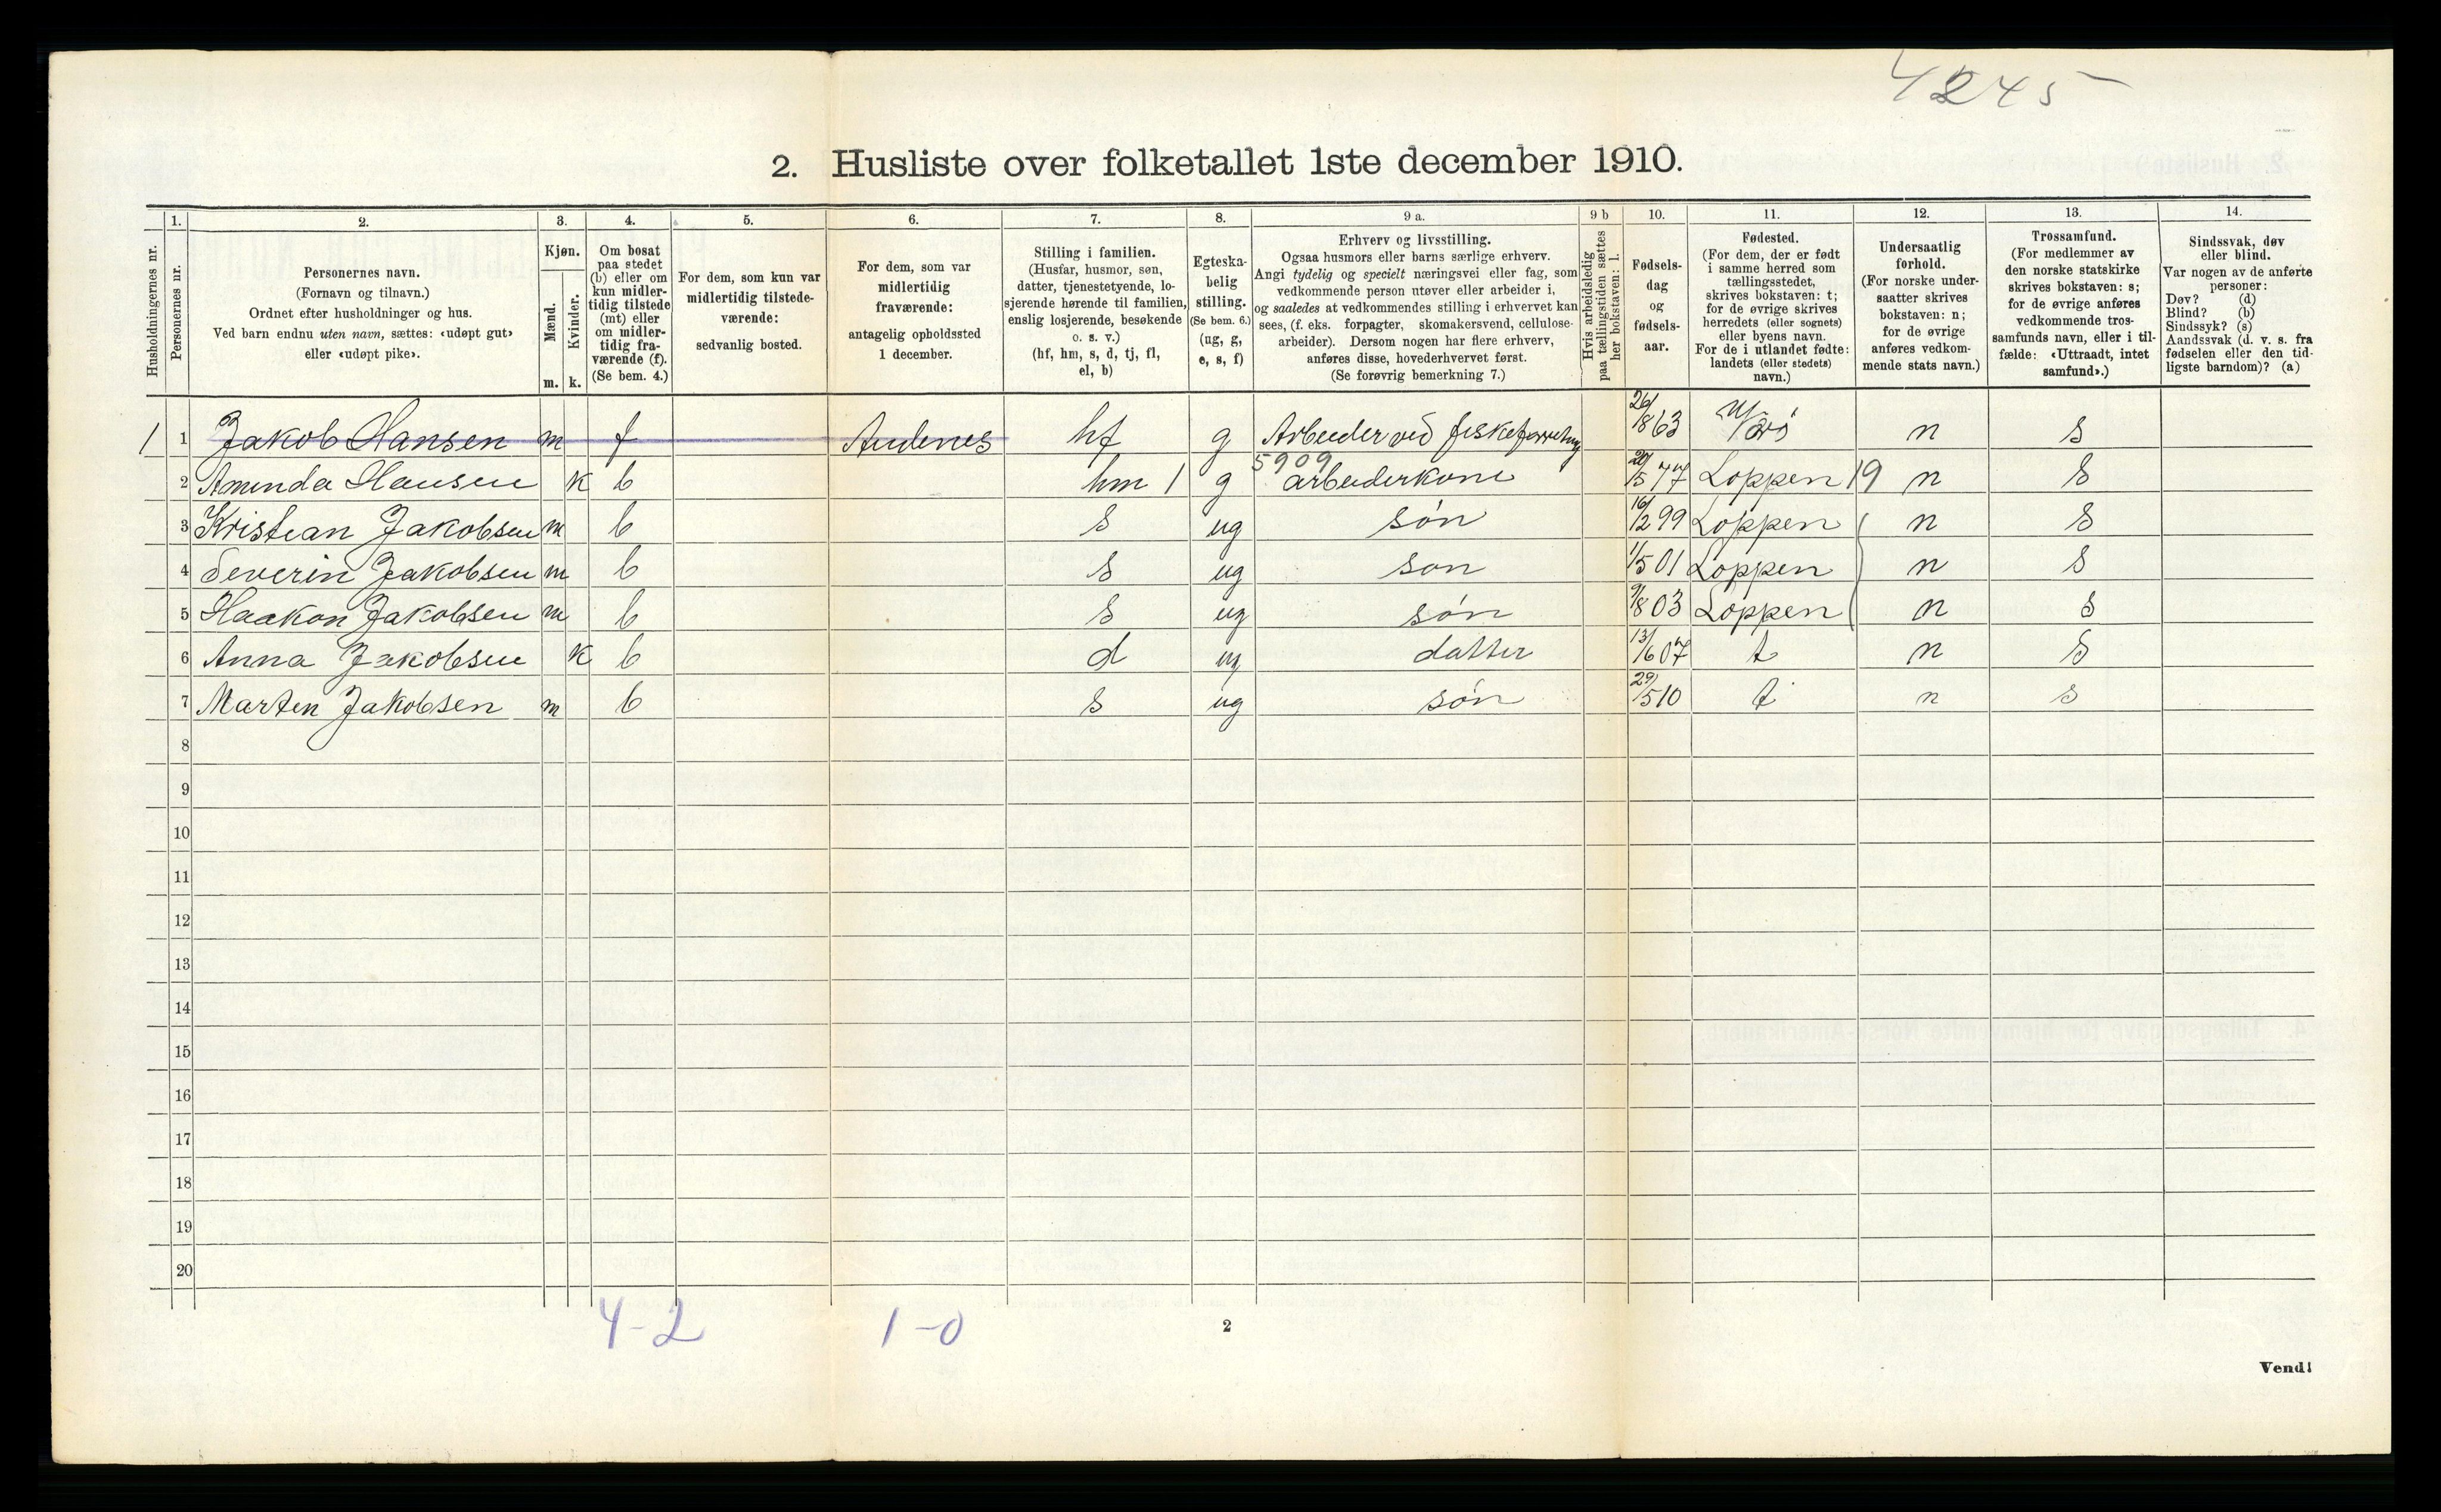 4245
2. Husliste over folketallet 1ste december 1910.
Husholdningernes nr.
1.
Personernes nr.
2.
Personernes navn.
(Fornavn og tilnavn.)
Ordnet efter husholdninger og hus.
Ved barn endnu uten navn, sættes: «udøpt gut»
eller «udøpt pike».
3.
Kjøn.
Mænd.
Kvinder.
m. k.
4.
Om bosat
paa stedet
(b) eller om
kun midler-
tidig tilstede
(mt) eller
om midler-
tidig fra-
værende (f).
(Se bem. 4.)
5.
For dem, som kun var
midlertidig tilstede-
værende:
sedvanlig bosted.
6.
For dem, som var
midlertidig
fraværende:
antagelig opholdssted
1 december.
7.
Stilling i familien.
(Husfar, husmor, søn,
datter, tjenestetyende, lo-
sjerende hørende til familien,
enslig losjerende, besøkende
o. s. v.)
(hf, hm, s, d, tj, fl,
el, b)
8.
Egteska-
belig
stilling.
(Se bem. 6.)
(ug, g,
e, s, f)
9 a.
Erhverv og livsstilling.
Ogsaa husmors eller barns særlige erhverv.
Angi tydelig og specielt næringsvei eller fag, som
vedkommende person utøver eller arbeider i,
og saaledes at vedkommendes stilling i erhvervet kan
sees, (f. eks. forpagter, skomakersvend, cellulose-
arbeider). Dersom nogen har flere erhverv,
anføres disse, hovederhvervet først.
(Se forøvrig bemerkning 7.)
9 b
Hvis arbeidsledig
paa tællingstiden sættes
her bokstaven: l.
10.
Fødsels-
dag
og
fødsels-
aar.
11.
Fødested.
(For dem, der er født
i samme herred som
tællingsstedet,
skrives bokstaven: t;
for de øvrige skrives
herredets (eller sognets)
eller byens navn.
For de i utlandet fødte:
landets (eller stedets)
navn.)
12.
Undersaatlig
forhold.
(For norske under-
saatter skrives
bokstaven: n;
for de øvrige
anføres vedkom-
mende stats navn.)
13.
Trossamfund.
(For medlemmer av
den norske statskirke
skrives bokstaven: s;
for de øvrige anføres
vedkommende tros-
samfunds navn, eller i til-
fælde: «Uttraadt, intet
samfund».)
14.
Sindssvak, døv
eller blind.
Var nogen av de anførte
personer:
Døv? (d)
Blind? (b)
Sindssyk? (s)
Aandssvak (d. v. s. fra
fødselen eller den tid-
ligste barndom)? (a)
1 1 Jakob Hansen m f Andenes hf g Arbeider ved fiskeforretning 26/8 63 n s
5909
2 Amanda Hansen k b hm 1 g arbeiderkone 20/5 77 Loppen 19 n s
3 Kristian Jakobsen m b s ug søn 16/2 99 Loppen n s
4 Severin Jakobsen m b s ug son 1/5 01 Loppen n s
5 Haakon Jakobsen m b s ug søn 9/8 03 Loppen n s
6 Anna Jakobsen k b d ug datter 13/6 07 t n s
7 Marten Jakobsen m b s ug søn 29/5 10 t n s
8
9
10
11
12
13
14
15
16
17
18
19
20
4-2 1-0
2
Vend!